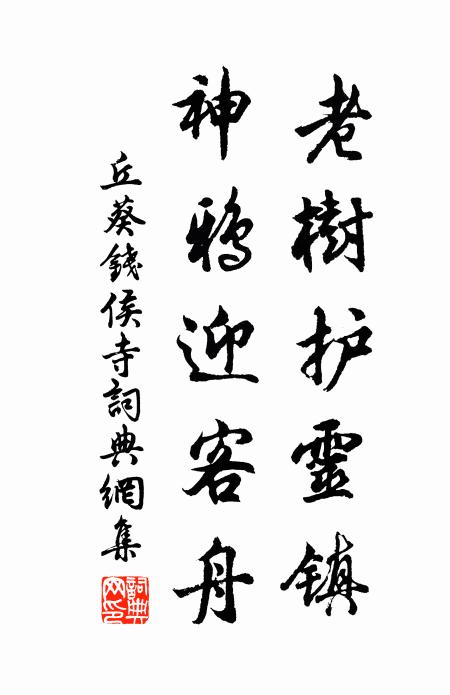 老樹护靈镇
神鴉迎客舟
丘葵錢侯寺詞典網集
詞典網印